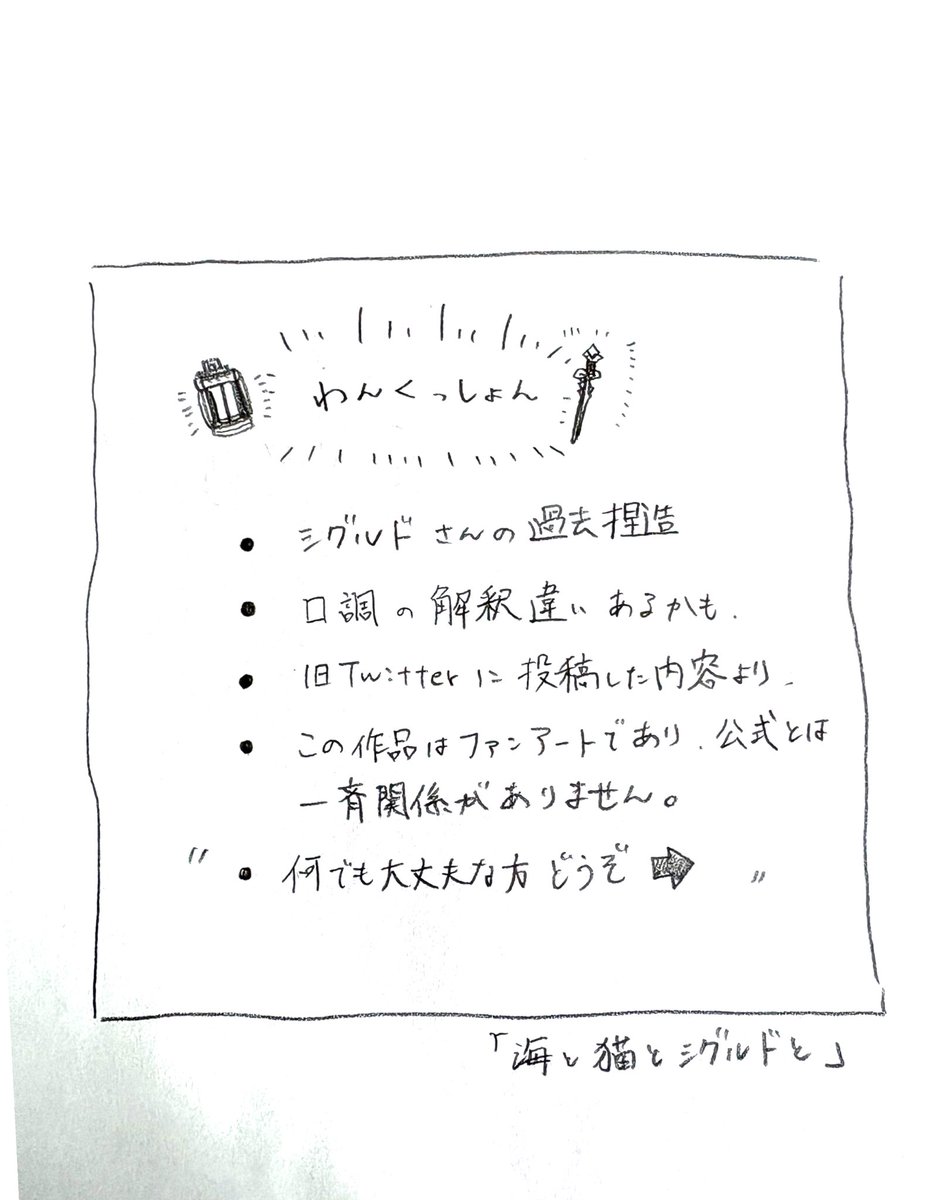 わんくっしょん
• シグルドさんの過去捏造
• 口調の解釈違いあるかも.
• 旧Twitterに投稿した内容より.
• この作品はファンアートであり、公式とは
一斉関係がありません。
" • 何でも大丈夫な方どうぞ ➡ "
「海と猫とシグルドと」